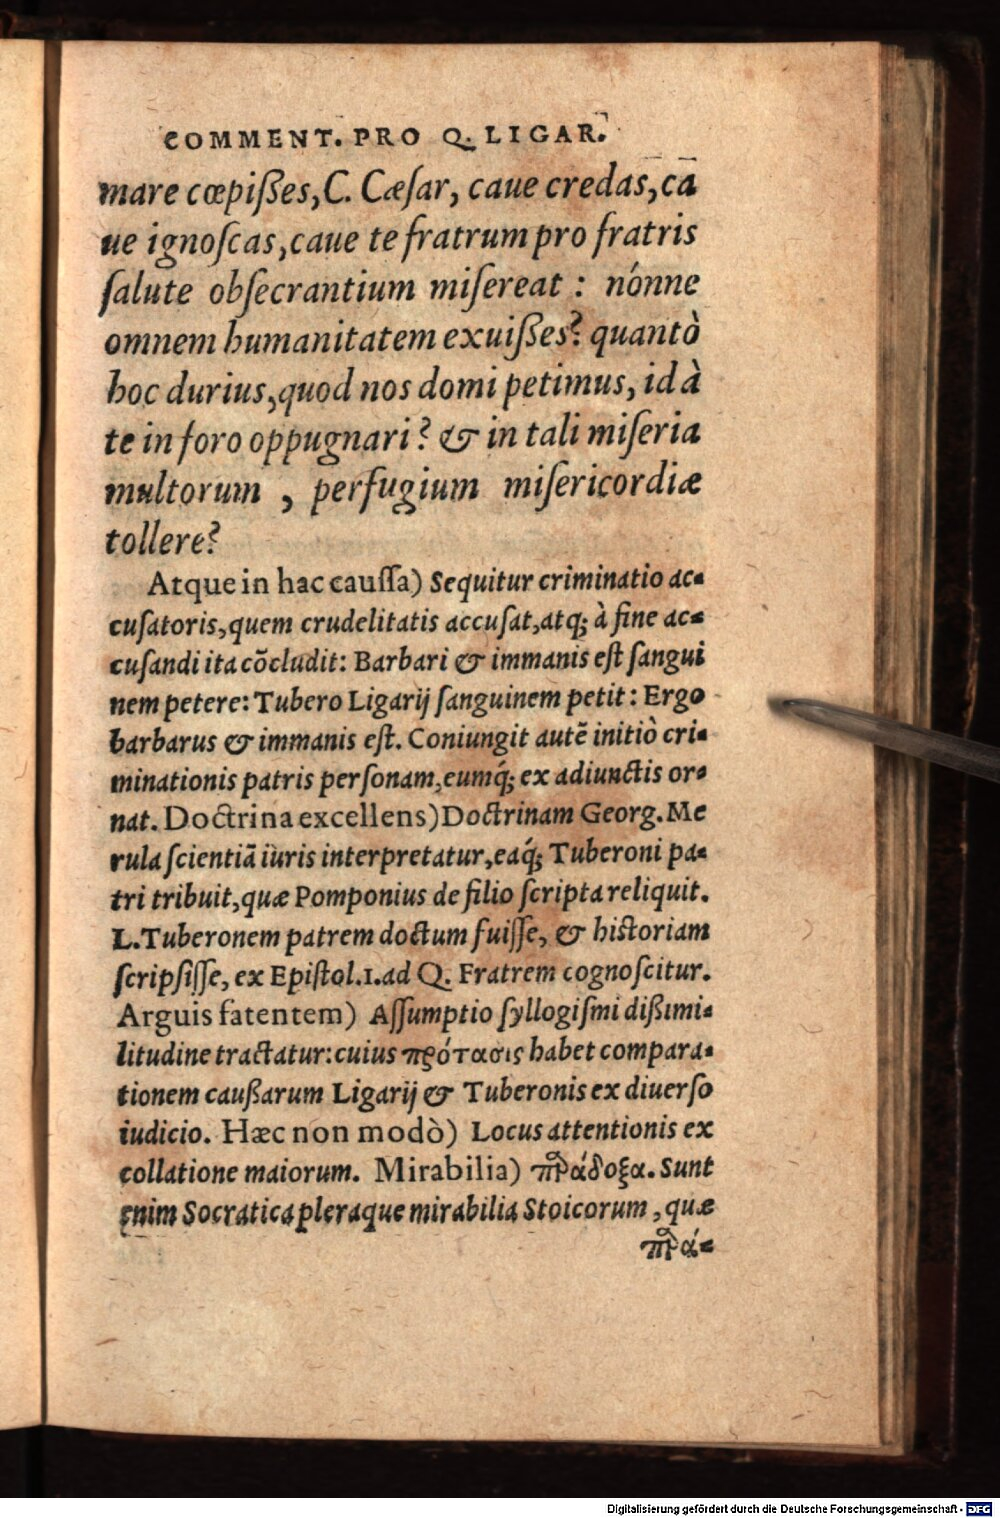 COMMENT. PRO Q. LIGAR.
mare cœpißes, C. Cæſar, caue credas, ca
ue ignoſcas, caue te fratrum pro fratris
ſalute obſecrantium miſereat : nónne
omnem humanitatem exuißes? quantò
hoc durius, quod nos domi petimus, id à
te in foro oppugnari? & in tali miſeria
multorum , perfugium miſericordiæ
tollere?
Atque in hac cauſſa) Sequitur criminatio ac-
cuſatoris, quem crudelitatis accuſat, atq; à fine ac-
cuſandi ita cõcludit: Barbari & immanis eſt ſangui
nem petere: Tubero Ligarij ſanguinem petit: Ergo
barbarus & immanis eſt. Coniungit autẽ initiò cri-
minationis patris perſonam, eumq́; ex adiunctis or-
nat. Doctrina excellens) Doctrinam Georg. Me
rula ſcientiã iuris interpretatur, eaq́; Tuberoni pa-
tri tribuit, quæ Pomponius de filio ſcripta reliquit.
L. Tuberonem patrem doctum fuiſſe, & hiſtoriam
ſcripſiſſe, ex Epiſtol. 1. ad Q. Fratrem cognoſcitur.
Arguis fatentem) Aſſumptio ſyllogiſmi dißimi-
litudine tractatur: cuius πρότασις habet compara-
tionem caußarum Ligarij & Tuberonis ex diuerſo
iudicio. Hæc non modò) Locus attentionis ex
collatione maiorum. Mirabilia) παράδοξα. Sunt
enim Socratica pleraque mirabilia Stoicorum , quæ
παρά-
Digitalisierung gefördert durch die Deutsche Forschungsgemeinschaft - DFG